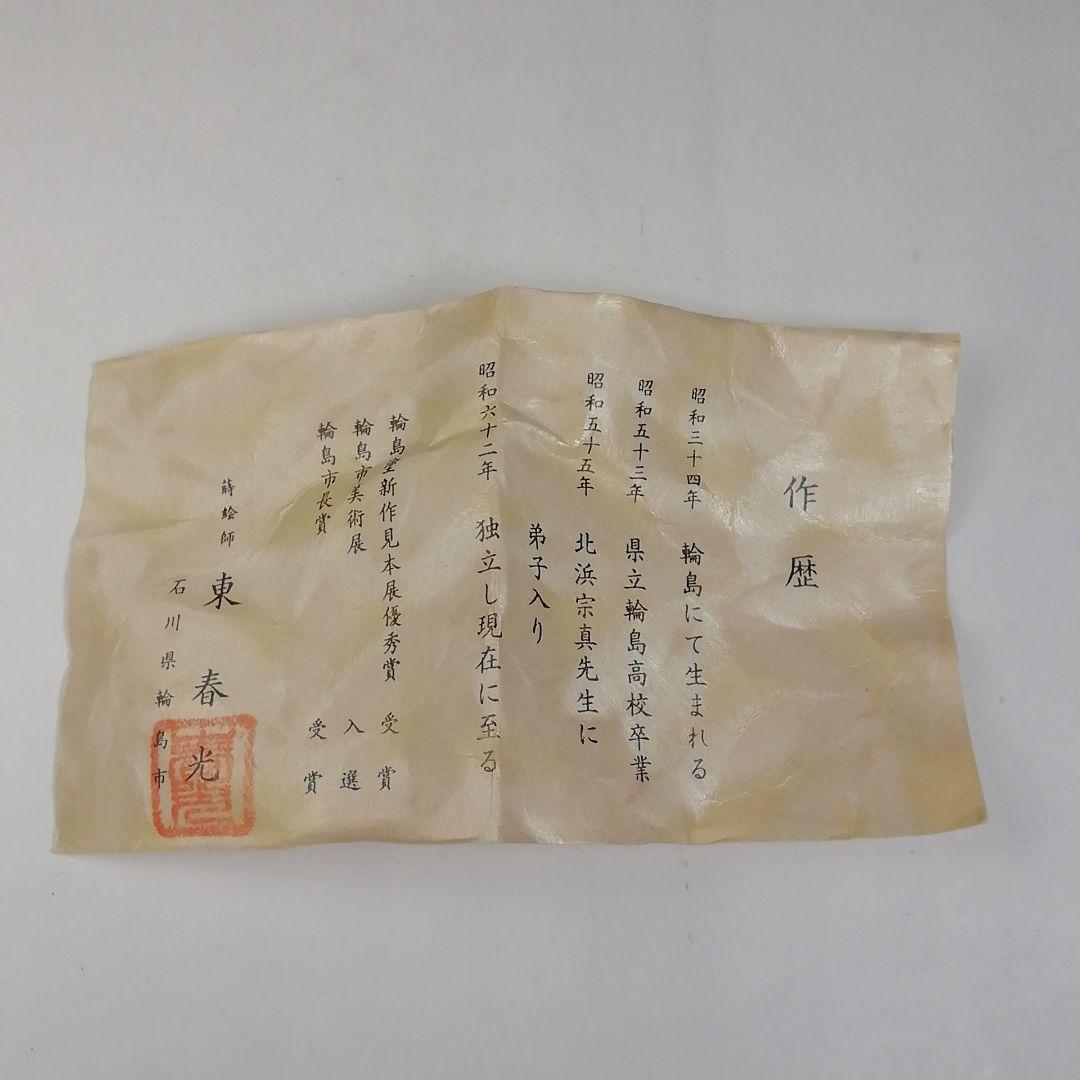 作歴
昭和三十四年 輪島にて生まれる
昭和五十三年 県立輪島高校卒業
昭和五十五年 北浜宗真先生に
弟子入り
昭和六十二年 独立し現在に至る
輪島塗新作見本展優秀賞 受賞
輪島市美術展 入選
輪島市長賞 受賞
蒔絵師 東春光
石川県輪島市